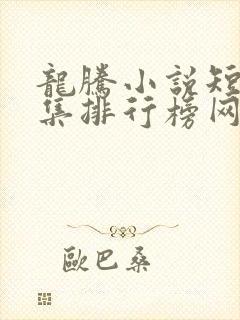 龍騰小說短
集排行榜网
歐巴桑